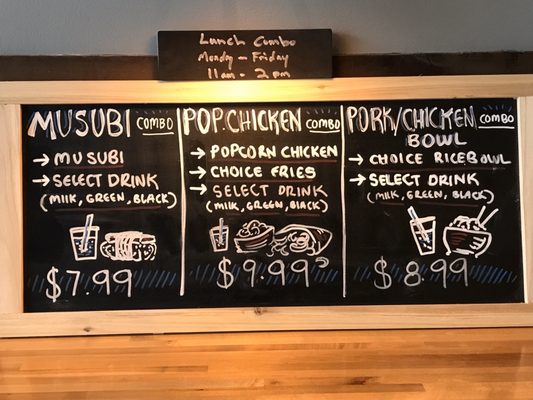 Lunch Combo
Monday - Friday
11am - 2pm
MUSUBI COMBO
→ MUSUBI
→ SELECT DRINK
(MILK, GREEN, BLACK)
$7.99
POP.CHICKEN COMBO
→ POPCORN CHICKEN
→ CHOICE FRIES
→ SELECT DRINK
(MILK, GREEN, BLACK)
$9.99
PORK/CHICKEN COMBO
BOWL
→ CHOICE RICE BOWL
→ SELECT DRINK
(MILK, GREEN, BLACK)
$8.99